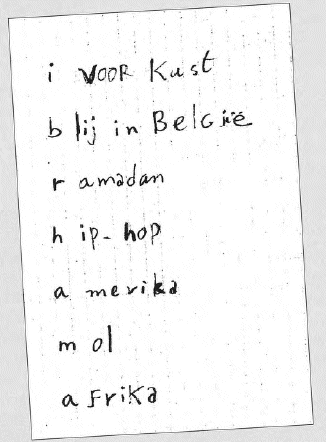 i VOOR Kust
b lij in BelGië
r amadan
h ip-hop
a merika
m ol
a frika